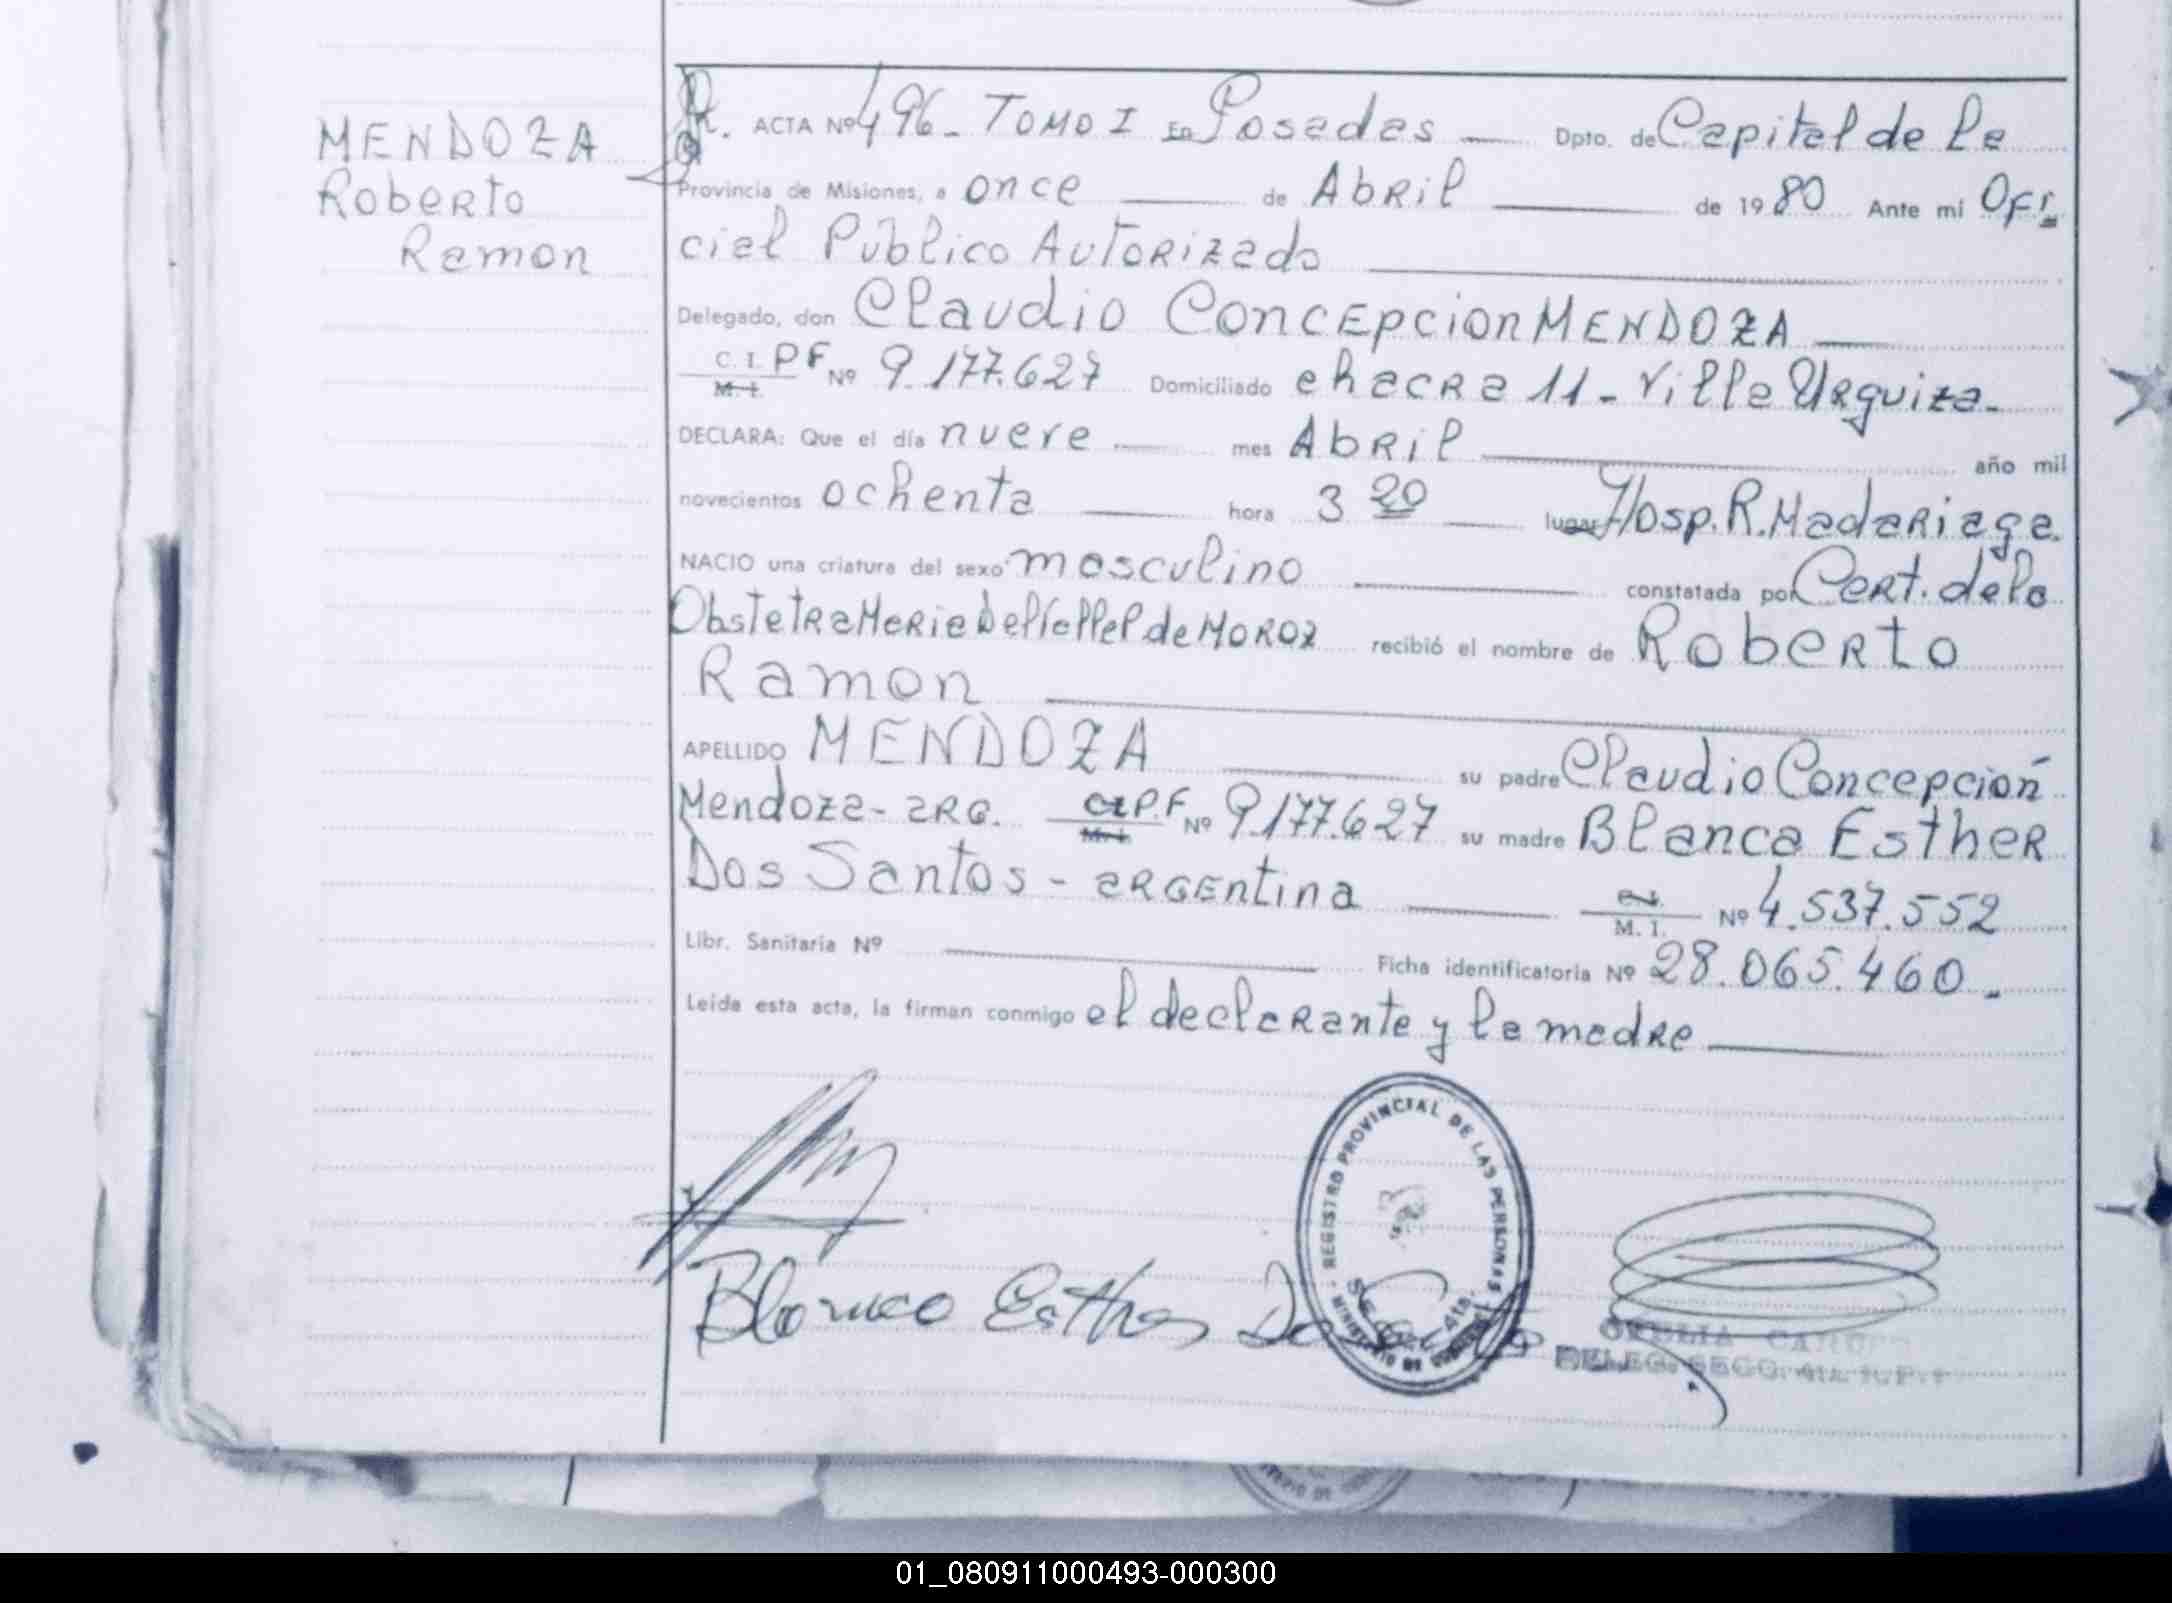 MENDOZA
Roberto
Ramon
ACTA Nº 496 - TOMO I en Posadas Dpto. de Capital de la
Provincia de Misiones, a once de Abril de 1980 Ante mi Ofi
cial Público Autorizado
Delegado, don Claudio Concepcion MENDOZA
C. I. PF Nº 9.177.627 Domiciliado chacra 11 - Villa Urquiza -
M. I.
DECLARA: Que el día nueve mes Abril año mil
novecientos ochenta hora 3 20 lugar Hosp. R. Madariaga.
NACIO una criatura del sexo masculino constatada por Cert. de la
Obstetra Maria Del Valle de MOROZ recibió el nombre de Roberto
Ramon
APELLIDO MENDOZA su padre Claudio Concepción
Mendoza - arg. C.I. P.F. Nº 9.177.627 su madre Blanca Esther
M. I.
Dos Santos - argentina C. I. Nº 4.537.552
M. I.
Libr. Sanitaria Nº Ficha identificatoria Nº 28.065.460 -
Leída esta acta, la firman conmigo el declarante y la madre
REGISTRO PROVINCIAL DE LAS PERSONAS
MINISTERIO DE GOBIERNO
4ta.
Blanca Esther Dos Santos
DELEG. SECC. 4ta.
01_080911000493-000300